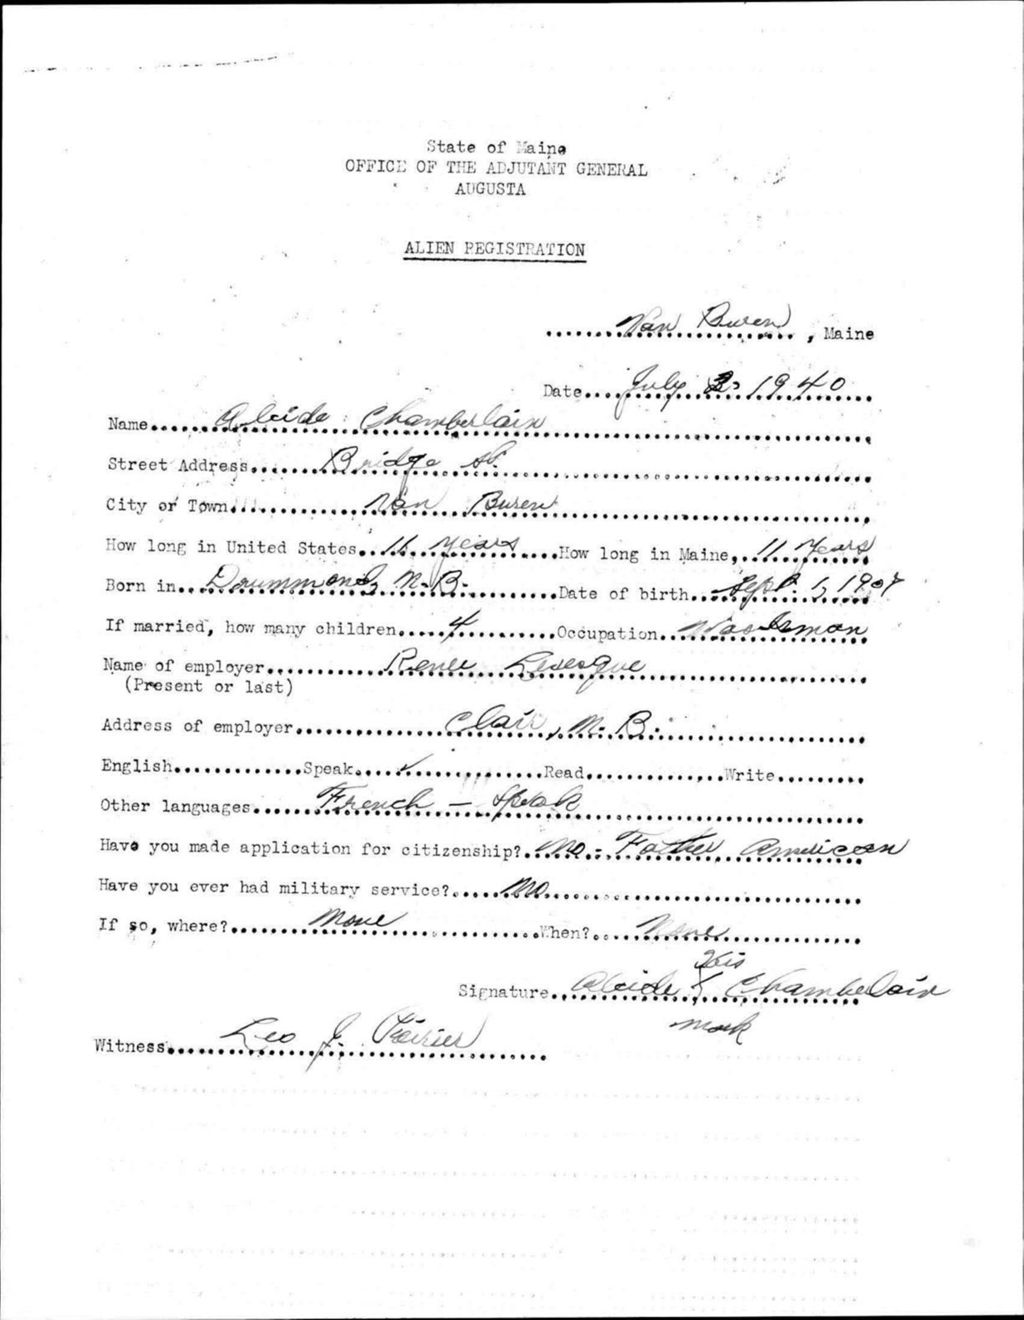 State of Maine
OFFICE OF THE ADJUTANT GENERAL
AUGUSTA
ALIEN REGISTRATION
Van Buren, Maine
Date July 2, 1940
Name Alcide Chamberlain
Street Address Bridge St.
City or Town Van Buren
How long in United States 16 years How long in Maine 11 years
Born in Drummond, N.B. Date of birth Sept. 1, 1907
If married, how many children 4 Occupation Woodsman
Name of employer Renee Levesque
(Present or last)
Address of employer Clair, N.B.
English Speak ✓ Read Write
Other languages French - Speak
Have you made application for citizenship? No - Father American
Have you ever had military service? No
If so, where? None When? None
His
Signature Alcide X Chamberlain
mark
Witness Leo J. Poirier